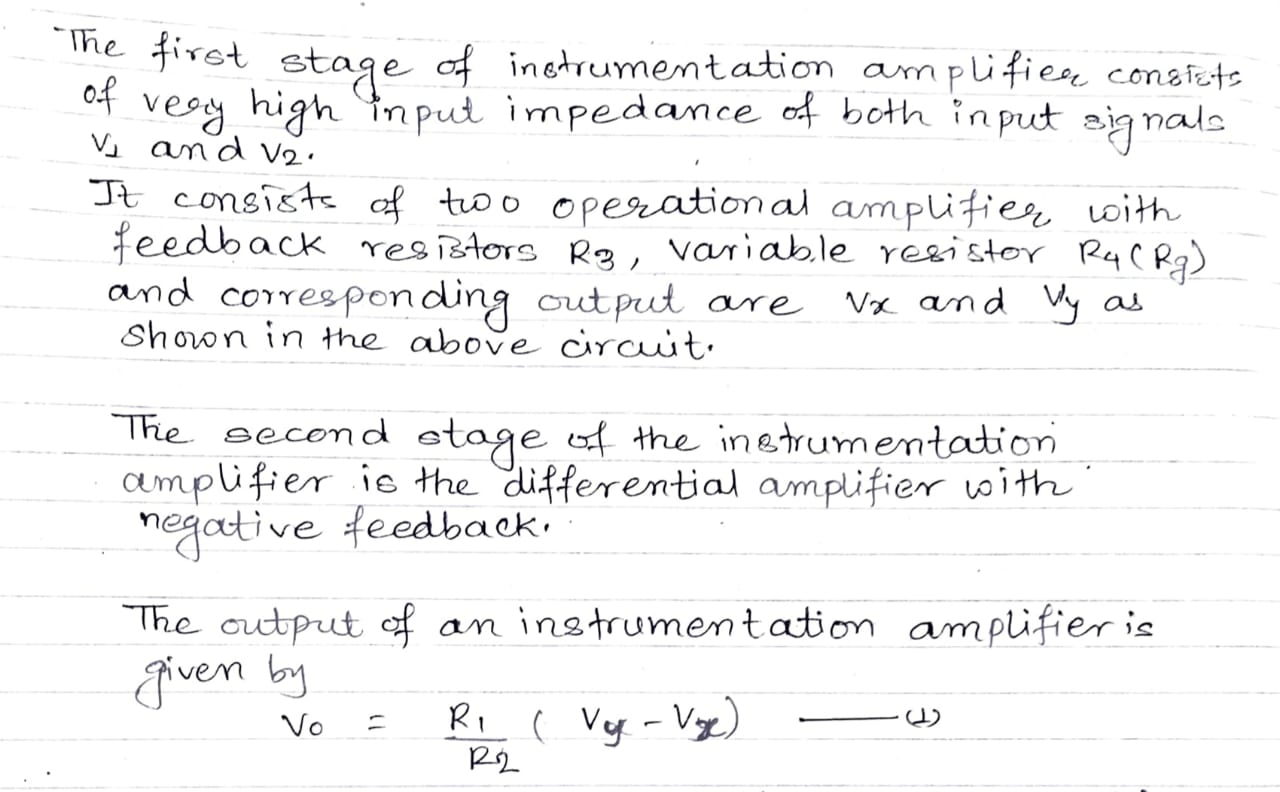 The first stage of instrumentation amplifier consists
of very high input impedance of both input signals
V1 and V2.
It consists of two operational amplifier with
feedback resistors R3, variable resistor R4 (Rg)
and corresponding output are Vx and Vy as
shown in the above circuit.
The second stage of the instrumentation
amplifier is the differential amplifier with
negative feedback.
The output of an instrumentation amplifier is
given by
Vo = R1/R2 (Vy - Vx) —— (1)